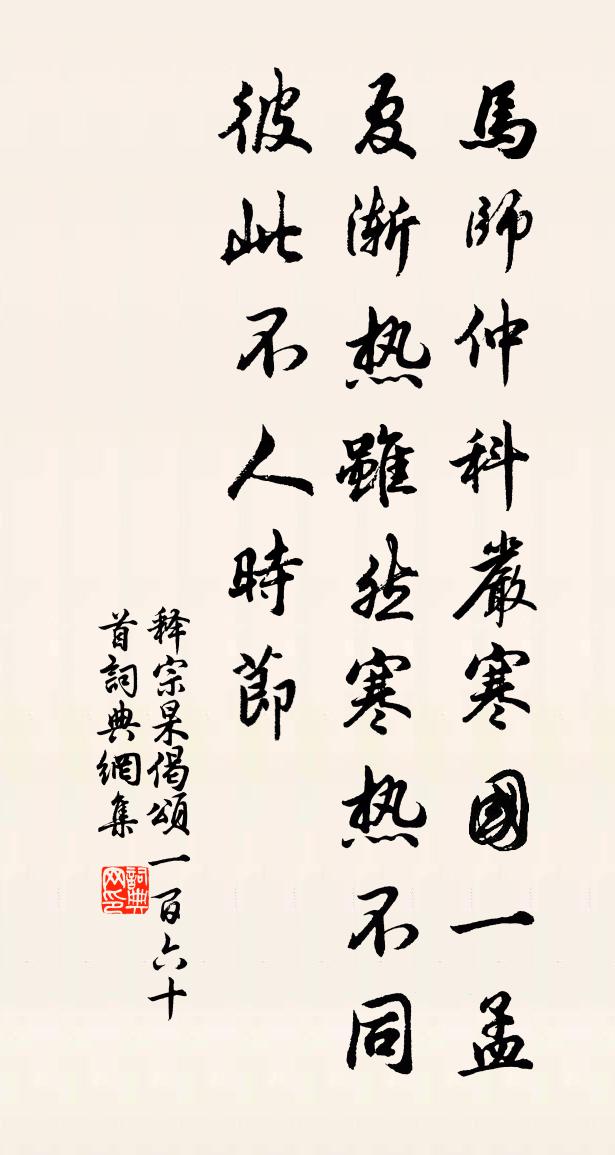 馬師仲科嚴寒國一孟
夏漸热雖然寒热不同
彼此不人時節
释宗杲偈頌一百六十
首詞典網集
詞典
网印